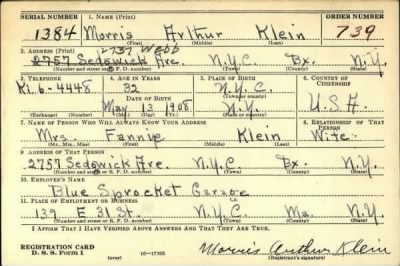 SERIAL NUMBER 1. NAME (Print) ORDER NUMBER
1384 Morris Arthur Klein 739
(First) (Middle) (Last)
2737 Webb
2. ADDRESS (Print)
2757 Sedgwick Ave. N.Y.C. Bx. N.Y.
(Number and street or R. F. D. number) (Town) (County) (State)
3. TELEPHONE 4. AGE IN YEARS 5. PLACE OF BIRTH 6. COUNTRY OF CITIZENSHIP
Ki. 6-4448 32 N.Y.C.
DATE OF BIRTH (Town or county)
May 13 1908 N.Y. U.S.A.
(Exchange) (Number) (Mo.) (Day) (Yr.) (State or country)
7. NAME OF PERSON WHO WILL ALWAYS KNOW YOUR ADDRESS 8. RELATIONSHIP OF THAT PERSON
Mrs. Fannie Klein Wife
(Mr., Mrs., Miss) (First) (Middle) (Last)
9. ADDRESS OF THAT PERSON
2757 Sedgwick Ave. N.Y.C. Bx. N.Y.
(Number and street or R. F. D. number) (Town) (County) (State)
10. EMPLOYER'S NAME
Blue Sprocket Garage
11. PLACE OF EMPLOYMENT OR BUSINESS
139 E 31 St. N.Y.C. Ma. N.Y.
(Number and street or R. F. D. number) (Town) (County) (State)
I AFFIRM THAT I HAVE VERIFIED ABOVE ANSWERS AND THAT THEY ARE TRUE.
REGISTRATION CARD
D. S. S. Form 1 (over) 16-17105 Morris Arthur Klein
(Registrant's signature)